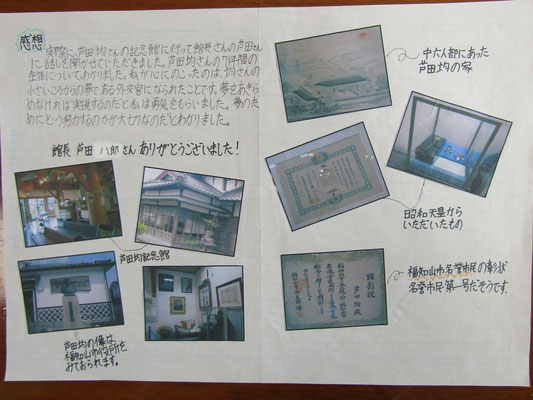 感想
実際に、芦田均さんの記念館に行って館長さんの芦田さん
に話しを聞かせていただきました。芦田均さんの71年間の
生涯についてわかりました。私が心にのこったのは、均さんの
小さいころからの夢である外交官になられたことです。夢をあきら
めなければ実現するのだと私は勇気をもらいました。夢のた
めにどう努力するのかが大切なのだとわかりました。
館長 芦田 八郎さん ありがとうございました!
芦田均記念館
芦田均の像は
福知山市役所を
みておられます。
中六人部にあった
芦田均の家
昭和天皇から
いただいたもの
顕彰状
芦田均殿
福知山市名誉市民の彰状
名誉市民第一号だそうです。